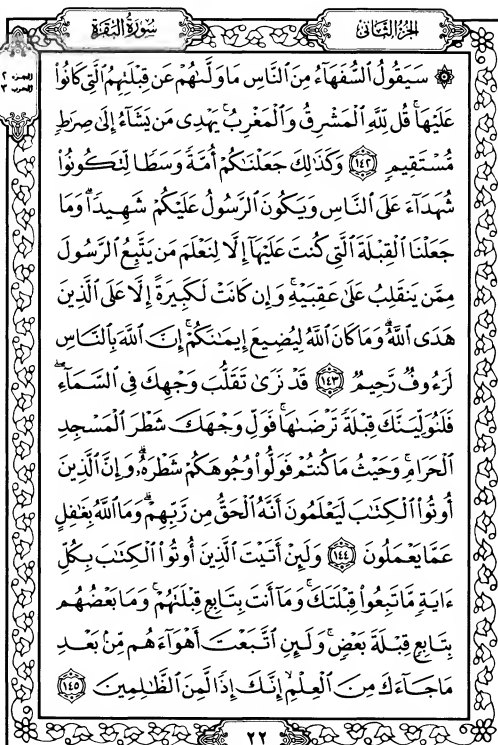 سورة البقرة
الجزء الثاني
الجزء ٢
الحزب ٣
۞ سَيَقُولُ ٱلسُّفَهَآءُ مِنَ ٱلنَّاسِ مَا وَلَّىٰهُمْ عَن قِبْلَتِهِمُ ٱلَّتِى كَانُوا۟
عَلَيْهَا ۚ قُل لِّلَّهِ ٱلْمَشْرِقُ وَٱلْمَغْرِبُ ۚ يَهْدِى مَن يَشَآءُ إِلَىٰ صِرَٰطٍ
مُّسْتَقِيمٍ ﴿١٤٢﴾ وَكَذَٰلِكَ جَعَلْنَٰكُمْ أُمَّةً وَسَطًا لِّتَكُونُوا۟
شُهَدَآءَ عَلَى ٱلنَّاسِ وَيَكُونَ ٱلرَّسُولُ عَلَيْكُمْ شَهِيدًا ۗ وَمَا
جَعَلْنَا ٱلْقِبْلَةَ ٱلَّتِى كُنتَ عَلَيْهَآ إِلَّا لِنَعْلَمَ مَن يَتَّبِعُ ٱلرَّسُولَ
مِمَّن يَنقَلِبُ عَلَىٰ عَقِبَيْهِ ۚ وَإِن كَانَتْ لَكَبِيرَةً إِلَّا عَلَى ٱلَّذِينَ
هَدَى ٱللَّهُ ۗ وَمَا كَانَ ٱللَّهُ لِيُضِيعَ إِيمَٰنَكُمْ ۚ إِنَّ ٱللَّهَ بِٱلنَّاسِ
لَرَءُوفٌ رَّحِيمٌ ﴿١٤٣﴾ قَدْ نَرَىٰ تَقَلُّبَ وَجْهِكَ فِى ٱلسَّمَآءِ ۖ
فَلَنُوَلِّيَنَّكَ قِبْلَةً تَرْضَىٰهَا ۚ فَوَلِّ وَجْهَكَ شَطْرَ ٱلْمَسْجِدِ
ٱلْحَرَامِ ۚ وَحَيْثُ مَا كُنتُمْ فَوَلُّوا۟ وُجُوهَكُمْ شَطْرَهُۥ ۗ وَإِنَّ ٱلَّذِينَ
أُوتُوا۟ ٱلْكِتَٰبَ لَيَعْلَمُونَ أَنَّهُ ٱلْحَقُّ مِن رَّبِّهِمْ ۗ وَمَا ٱللَّهُ بِغَٰفِلٍ
عَمَّا يَعْمَلُونَ ﴿١٤٤﴾ وَلَئِنْ أَتَيْتَ ٱلَّذِينَ أُوتُوا۟ ٱلْكِتَٰبَ بِكُلِّ
ءَايَةٍ مَّا تَبِعُوا۟ قِبْلَتَكَ ۚ وَمَآ أَنتَ بِتَابِعٍ قِبْلَتَهُمْ ۚ وَمَا بَعْضُهُم
بِتَابِعٍ قِبْلَةَ بَعْضٍ ۚ وَلَئِنِ ٱتَّبَعْتَ أَهْوَآءَهُم مِّنۢ بَعْدِ
مَا جَآءَكَ مِنَ ٱلْعِلْمِ ۙ إِنَّكَ إِذًا لَّمِنَ ٱلظَّٰلِمِينَ ﴿١٤٥﴾
٢٢